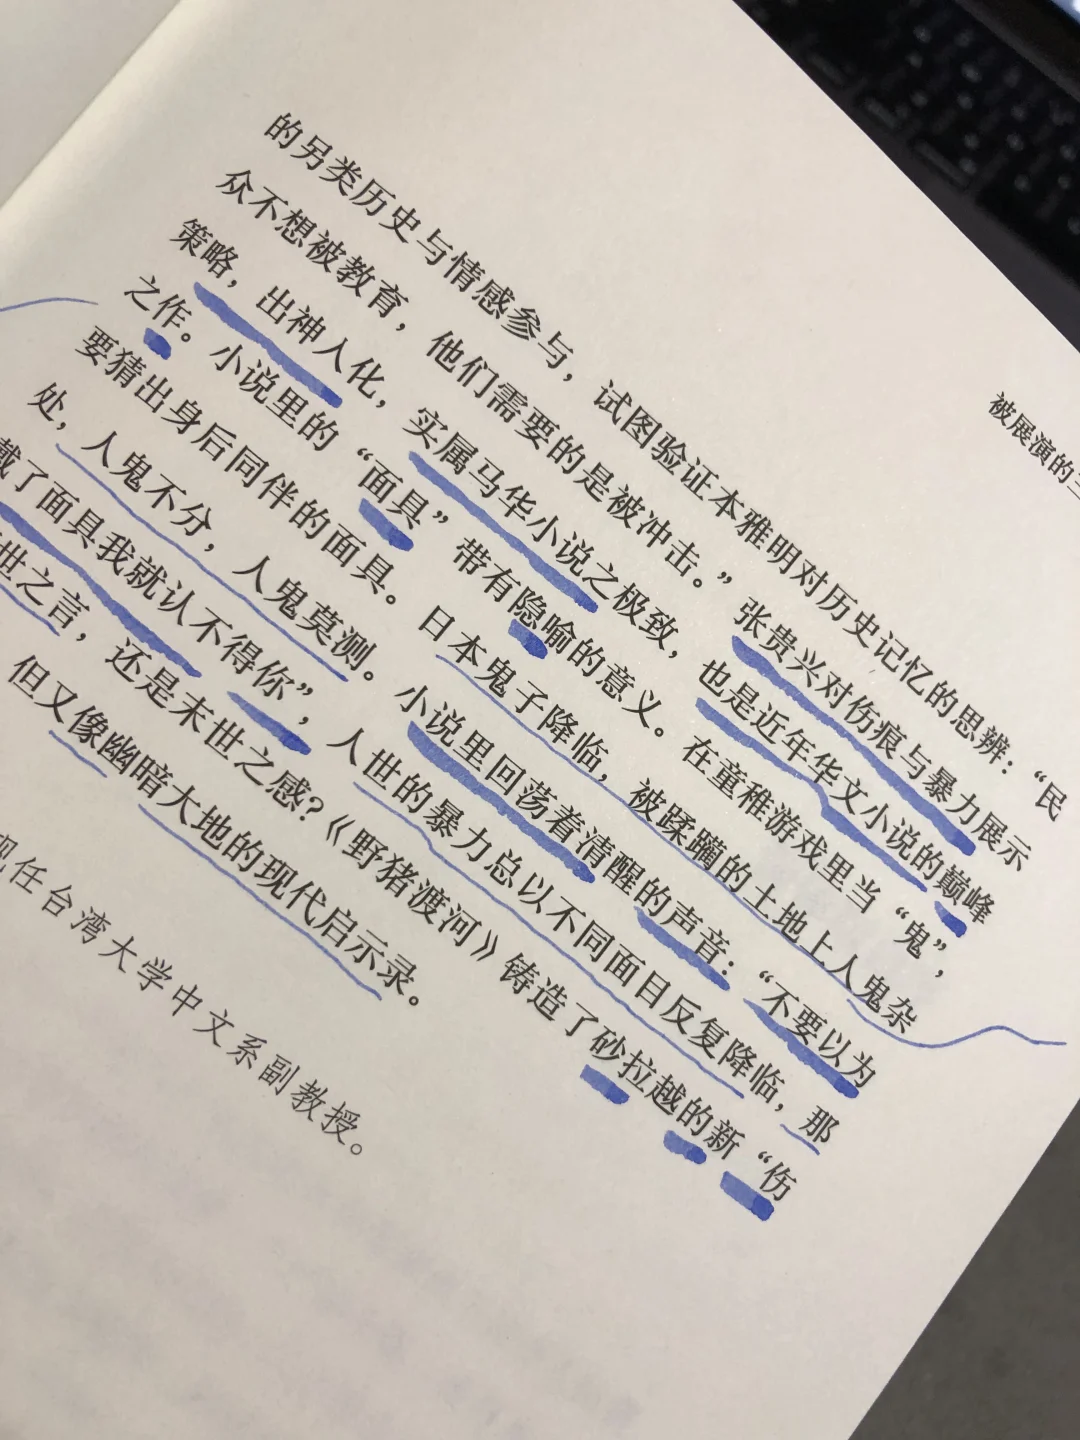 被展演的
的另类历史与情感参与，试图验证本雅明对历史记忆的思辨：“民
众不想被教育，他们需要的是被冲击。”张贵兴对伤痕与暴力展示
策略，出神入化，实属马华小说之极致，也是近年华文小说的巅峰
之作。小说里的“面具”带有隐喻的意义。在童稚游戏里当“鬼”，
要猜出身后同伴的面具。日本鬼子降临，被蹂躏的土地上人鬼杂
处，人鬼不分，人鬼莫测。小说里回荡着清醒的声音：“不要以为
戴了面具我就认不得你”，人世的暴力总以不同面目反复降临，那
世之言，还是末世之感？《野猪渡河》铸造了砂拉越的新“伤
但又像幽暗大地的现代启示录。
现任台湾大学中文系副教授。